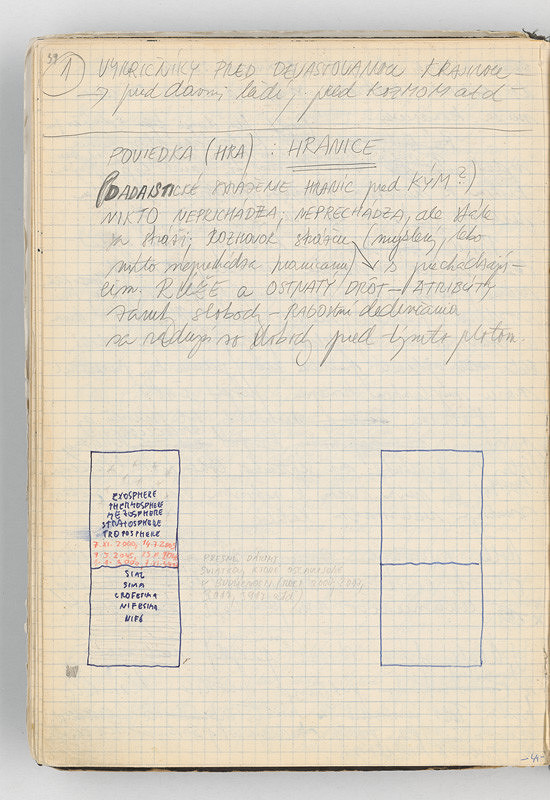 39
1 VÝKRIČNÍKY PRED DEVASTOVANOU KRAJINOU –
→ pred davmi ľudí, pred KOZMOM atď –
POVIEDKA (HRA) : HRANICE
(DADAISTICKÉ STRÁŽENIE HRANÍC pred KÝM?)
NIKTO NEPRICHÁDZA, NEPRECHÁDZA, ale stále
sa stráži; ROZHOVOR strážcu (myslený, lebo
nikto neprechádza hranicami) s prechádzajú-
cim. RUŽE a OSTNATÝ DRÔT – ATRIBÚTY
slobody – RADOSTNÍ dedinčania
sa radujú zo slobody pred týmto plotom.
EXOSPHERE
THERMOSPHERE
MEZOSPHERE
STRATOSPHERE
TROPOSPHERE
7. XI. 2000, 14.7.
SIAL
SIMA
CROFESIMA
NIFESIMA
NIFÉ
PRESNÉ DÁTUMY